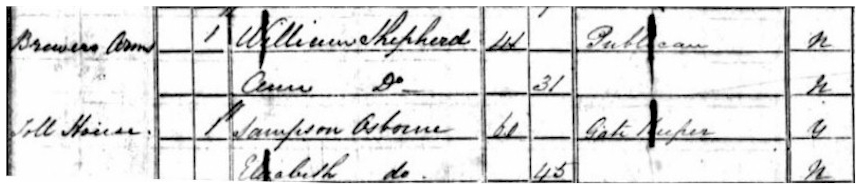 Brewers Arms 1 William Shepherd 41 Publican N
Ann Do 31 N
Toll House. 1 Sampson Osborne 60 Gate Keeper Y
Elizabeth do. 45 N